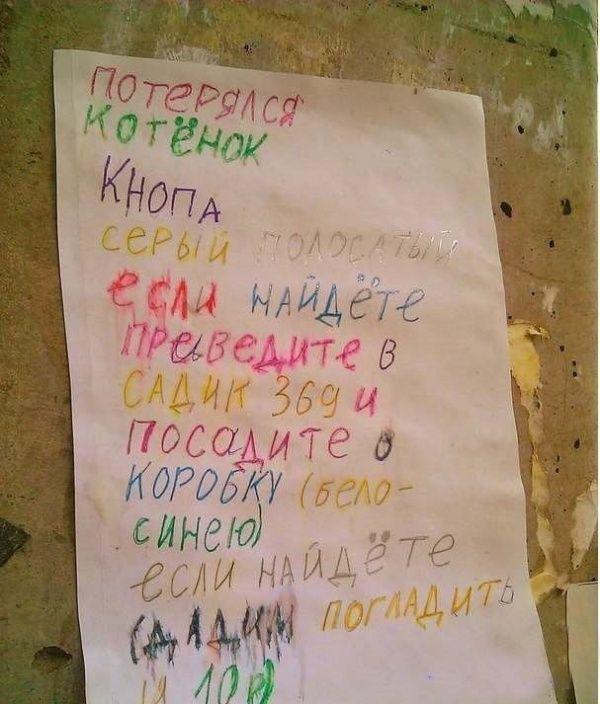 ПОТЕРЯЛСЯ
КОТЁНОК
КНОПА
СЕРЫЙ ПОЛОСАТЫЙ
ЕСЛИ НАЙДЁТЕ
ПРЕВЕДИТЕ В
САДИК 369 И
ПОСАДИТЕ В
КОРОБКУ (БЕЛО-
СИНЕЮ)
ЕСЛИ НАЙДЁТЕ
ДАДИМ ПОГЛАДИТЬ
И 10 Р